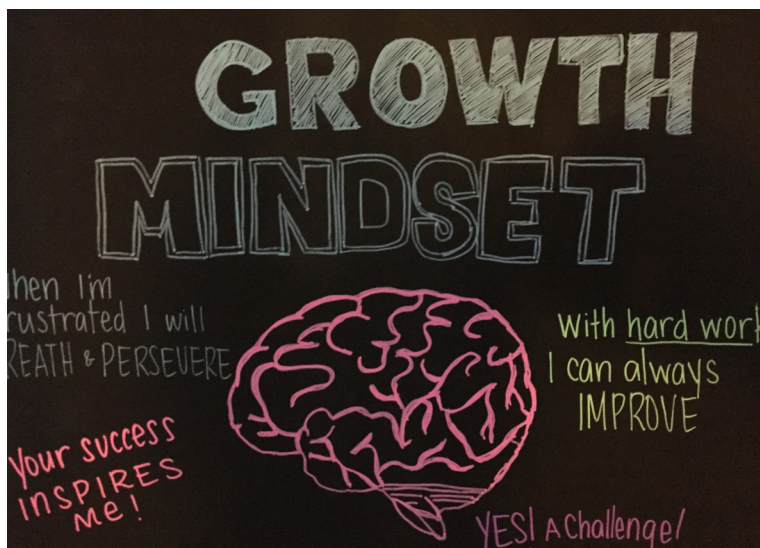 GROWTH
MINDSET
hen I'm
rustrated I will
REATH & PERSEVERE
With hard wor
I can always
IMPROVE
Your success
INSPIRES
Me!
YES! A Challenge!